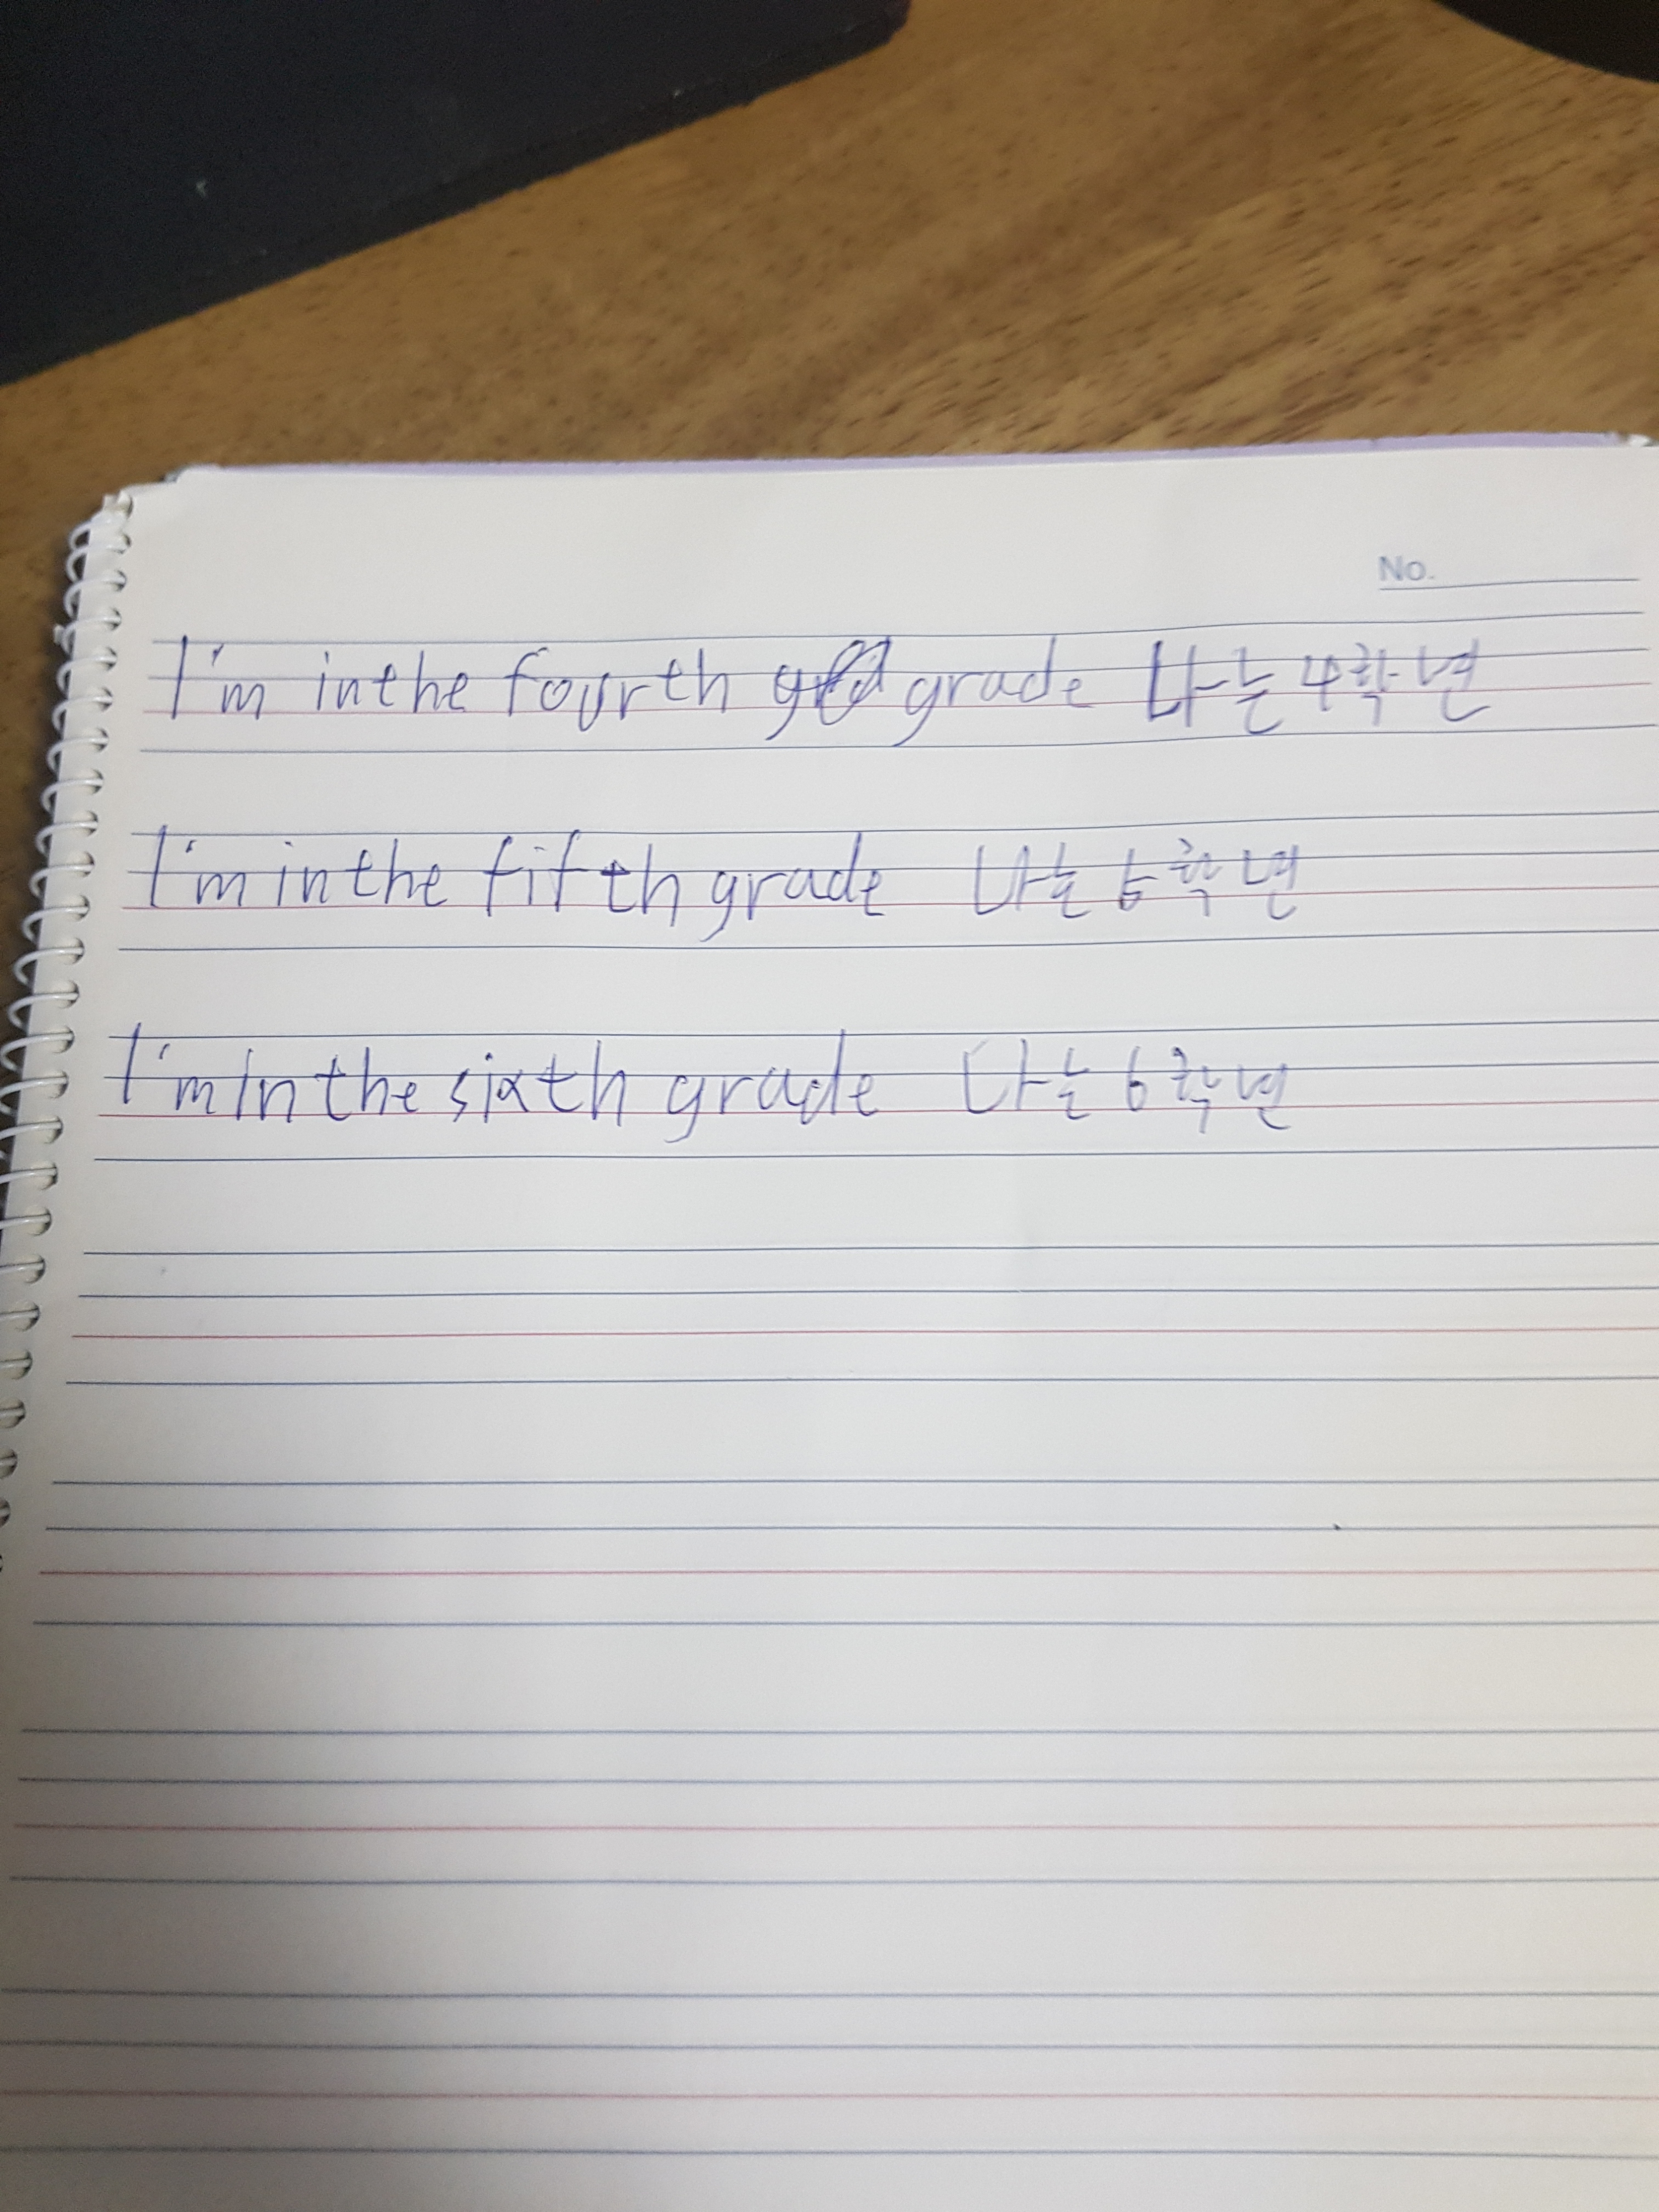 No.
I'm in the fourth grade 나는 4학년
I'm in the fifth grade 나는 5학년
I'm in the sixth grade 나는 6학년